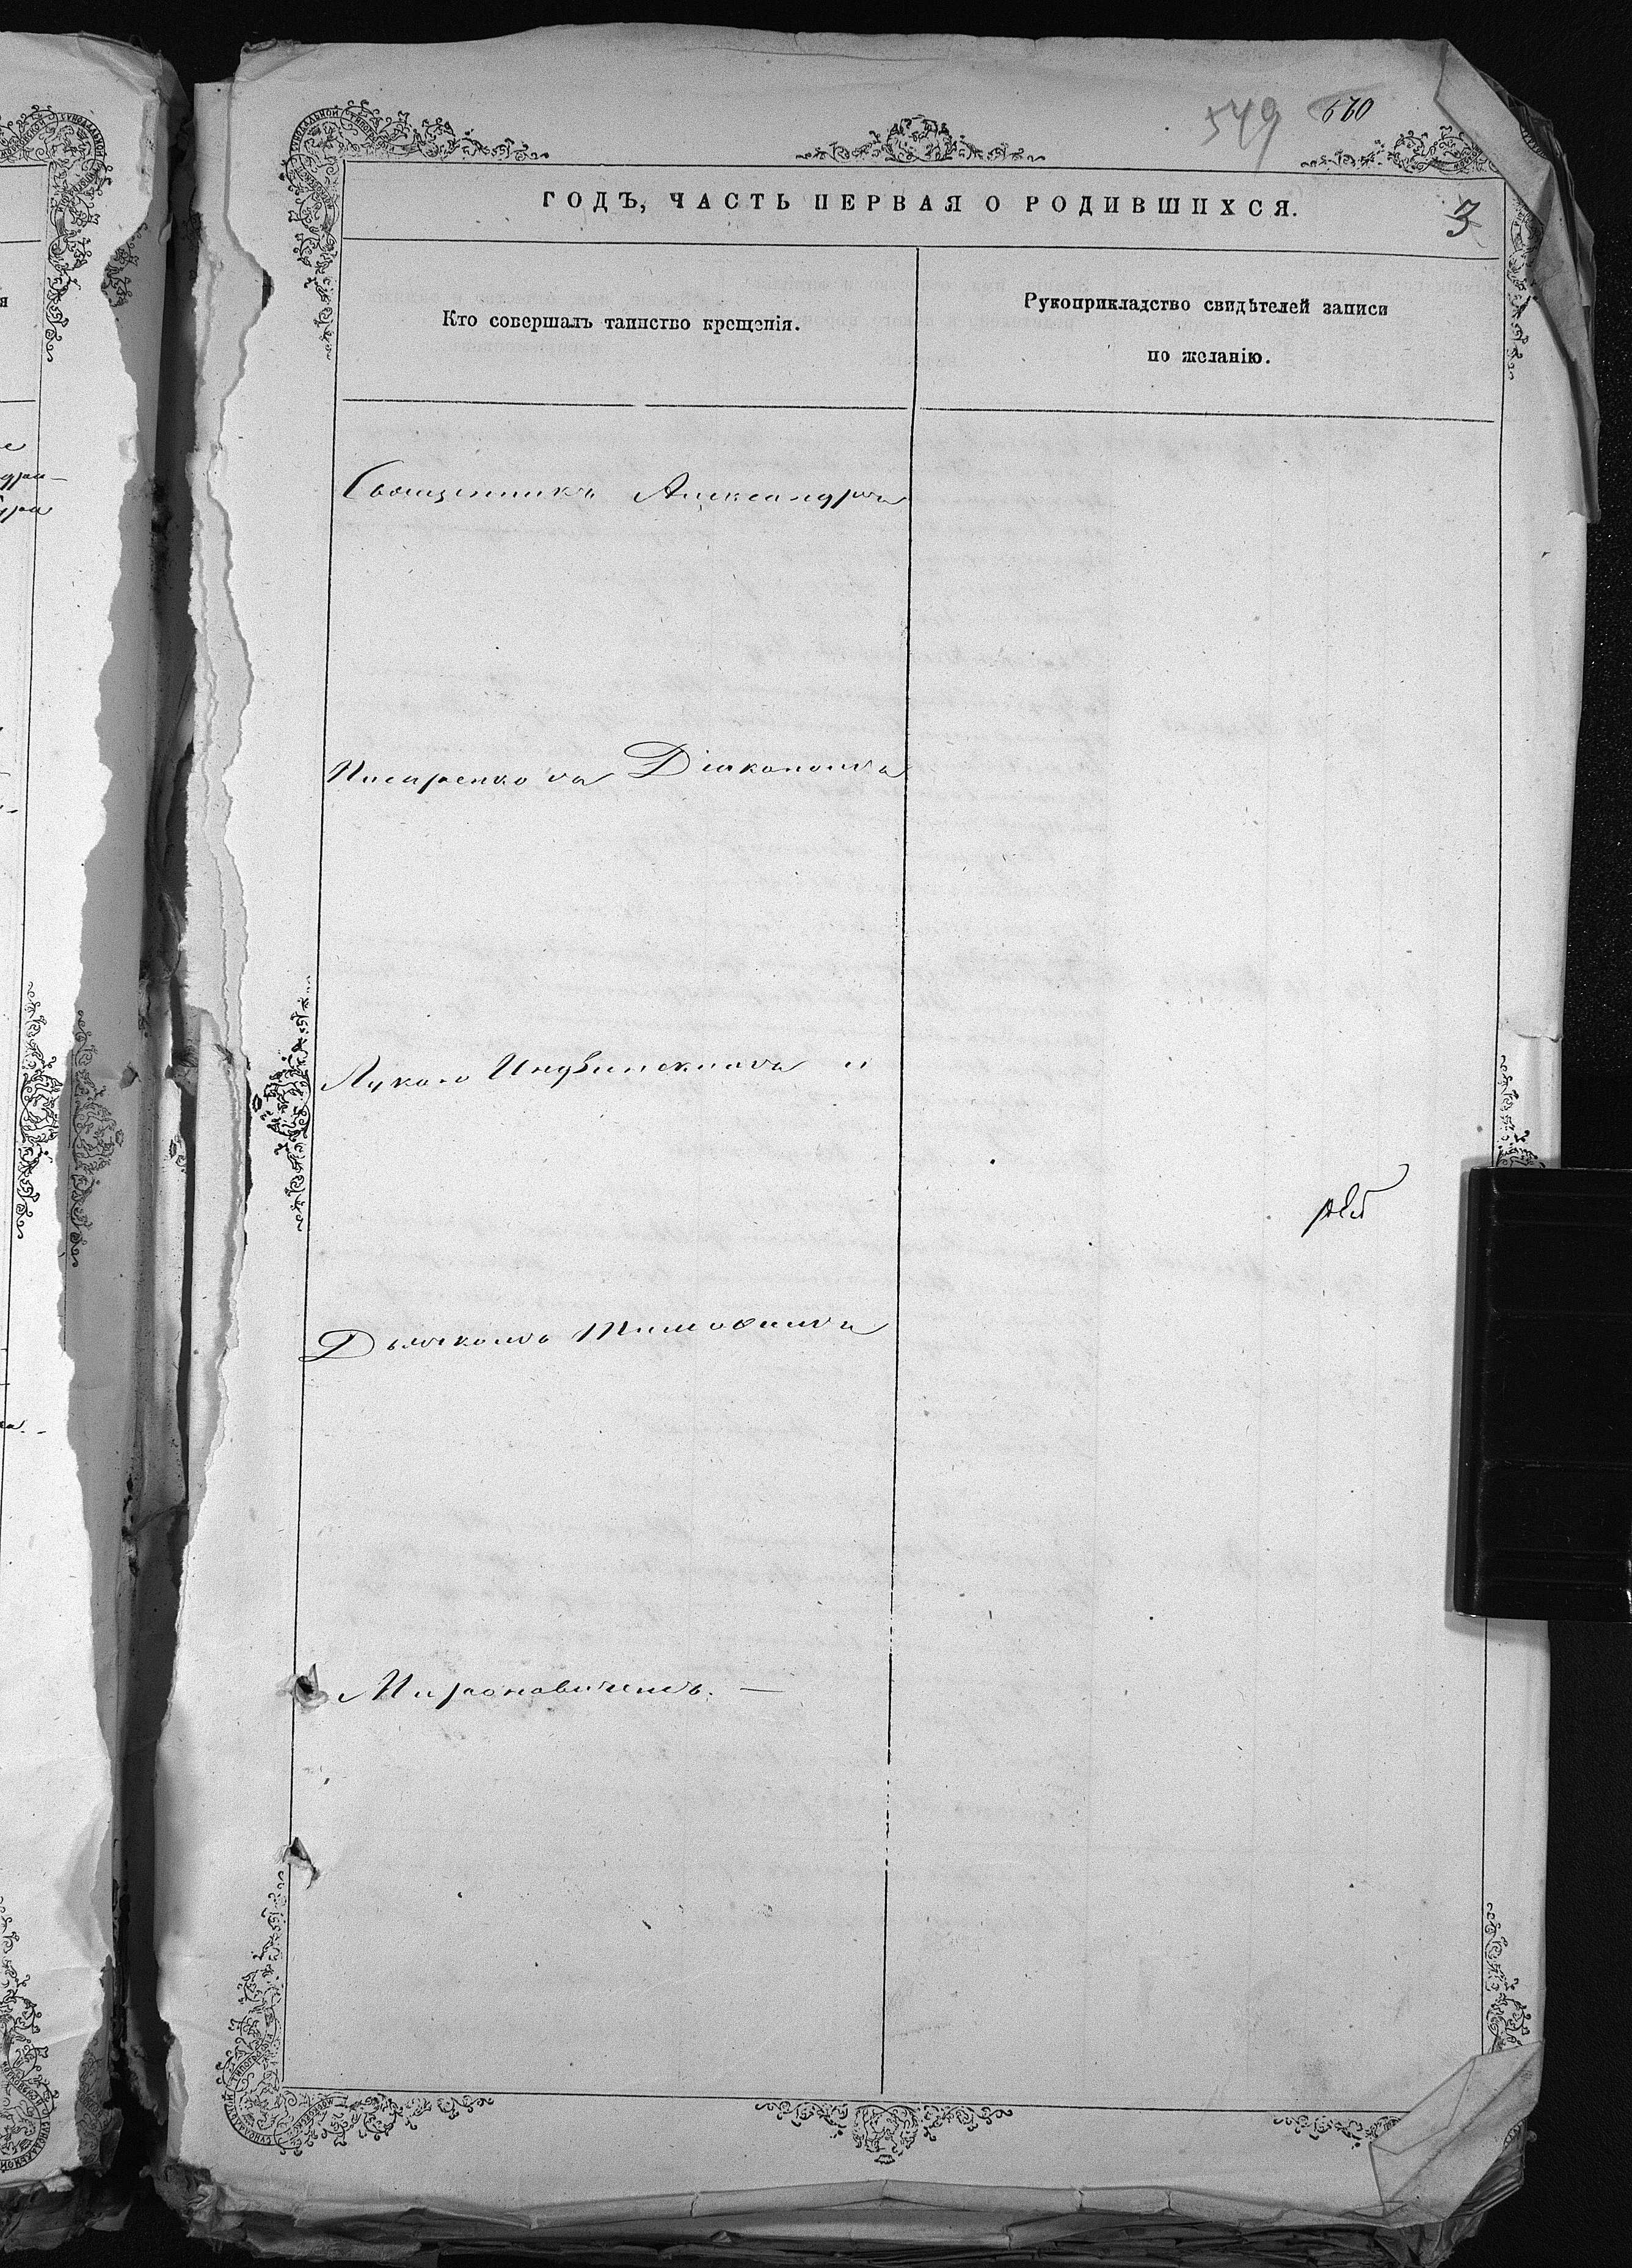 549 670
ГОДЪ, ЧАСТЬ ПЕРВАЯ О РОДИВШИХСЯ.
3
Кто совершалъ таинство крещенія.
Рукоприкладство свидѣтелей записи
по желанію.
Священникъ Александръ
Писаренко съ Діакономъ
Лукою Индвинскимъ и
Дьячкомъ Тимофеемъ
Мироновичемъ. —